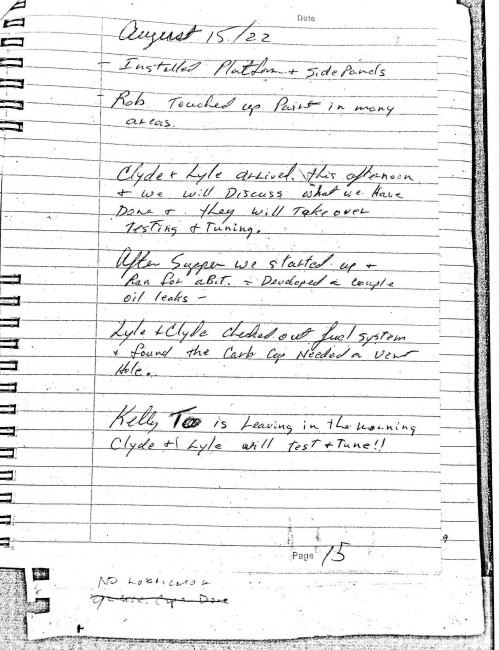 Date
August 15/22
- Installed Platform + Side Panels
- Rob Touched up Paint in many
areas.
Clyde + Lyle arrived this afternoon
+ we will Discuss what we Have
Done + they will Take over
Testing + Tuning.
After Supper we started up +
Ran for a Bit. = Developed a couple
oil leaks -
Lyle + Clyde checked out fuel system
+ found the Carb Cap Needed a Vent
Hole.
Kelly is Leaving in the morning
Clyde + Lyle will test + Tune!!
Page 15
NO
Done